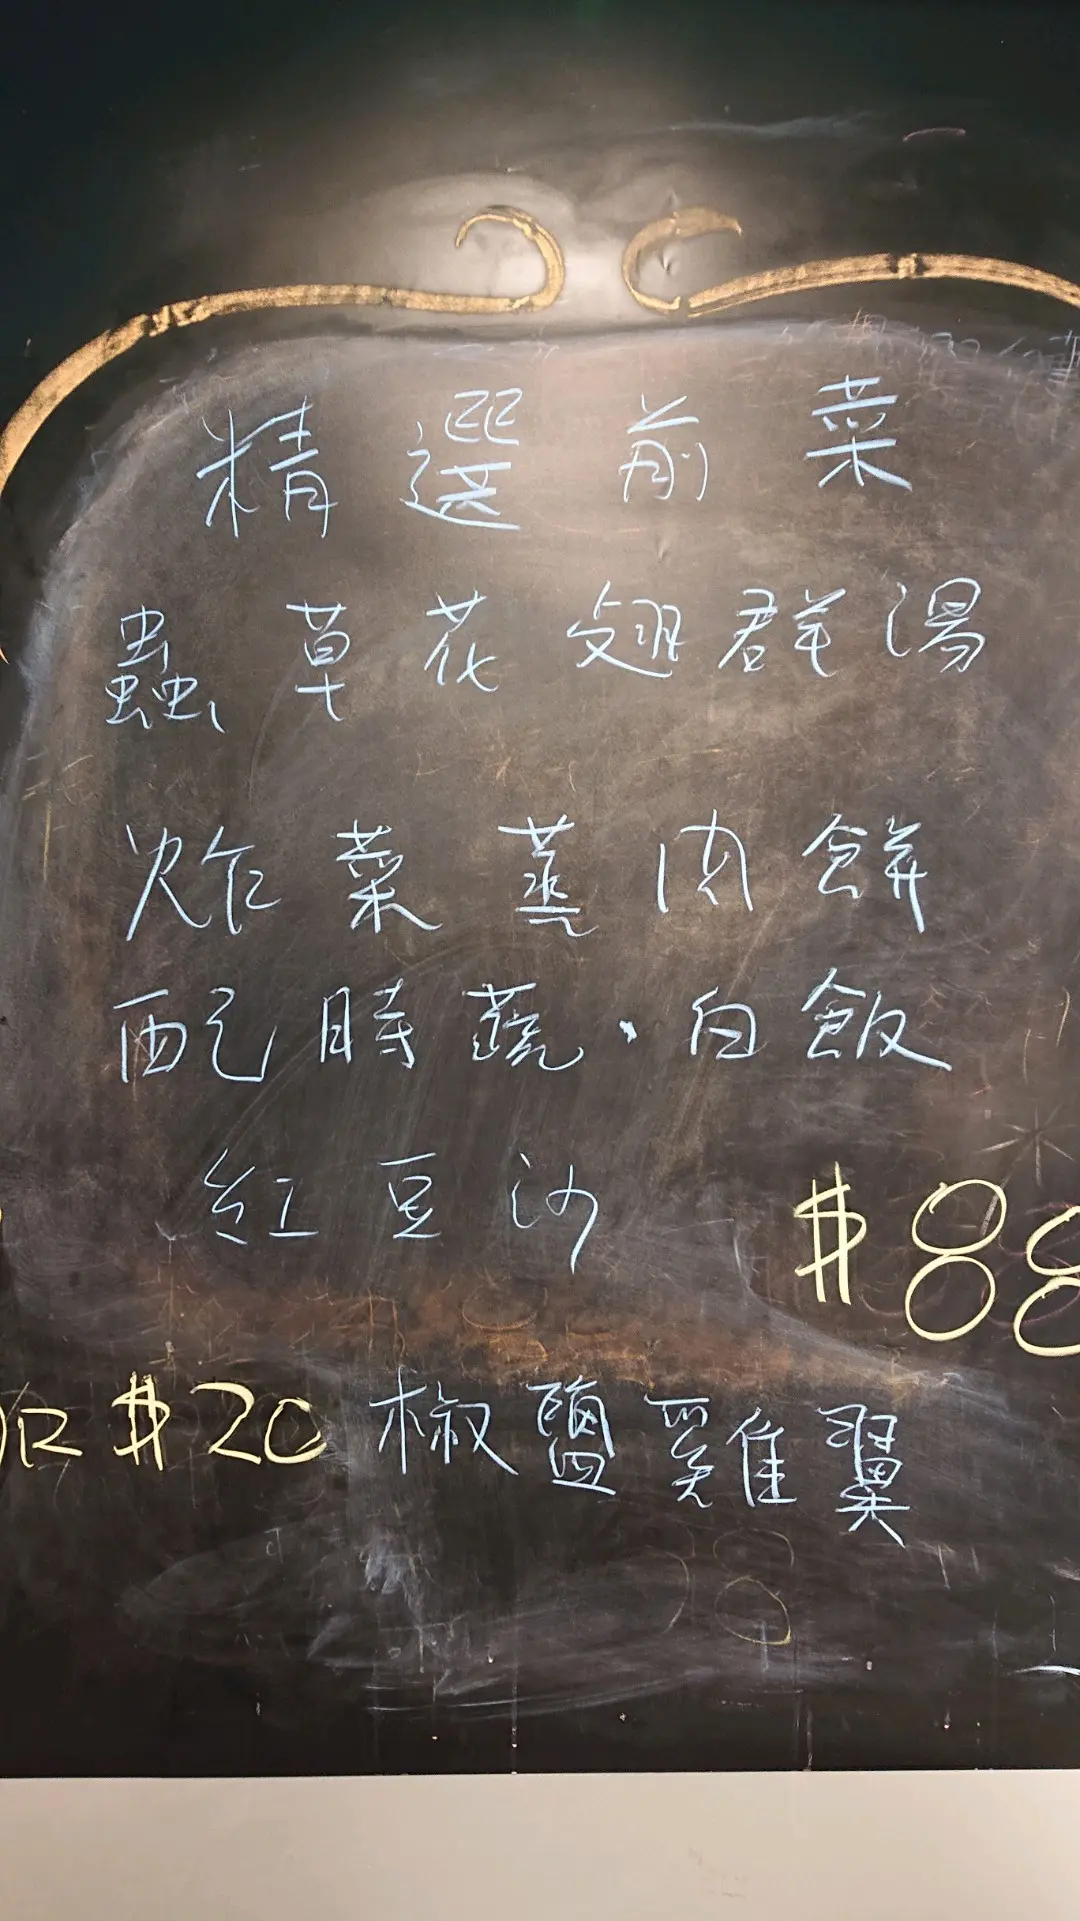 精選前菜
蟲草花翅群湯
炸菜蒸肉餅
配時蔬、白飯
紅豆沙 $88
$20 椒鹽雞翼